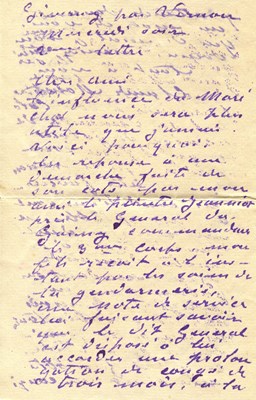 Giverny par Vernon
mercredi soir
votre lettre
Cher ami
l'influence du Maré
chal nous sera plus
utile que jamais.
voici pourquoi
en réponse à une
demarche faite de
son coté par mon
ami le peintre Jeanniot
près le General du
commandant
le 3me corps mon
fils reçoit à l'ins
tant par les soins de
la gendarmerie,
une note de service
lui faisant savoir
que le dit General
est disposé à lui
accorder une prolon
gation de congé de
trois mois, à la